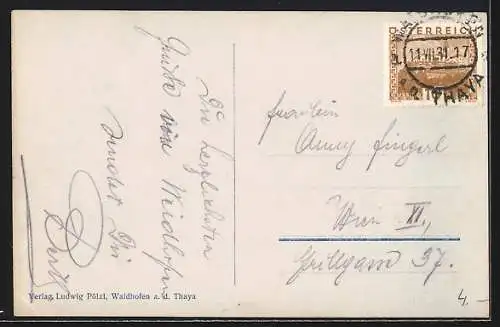 Die herzlichsten
Grüße von Waidhofen
sendet Dir
ÖSTERREICH
WAIDHOFEN
11.VII.31.17
a.d. THAYA
Fräulein
Anny Fingerl
Wien XI,
Grillgasse 37.
4,-
Verlag Ludwig Pölzl, Waidhofen a. d. Thaya